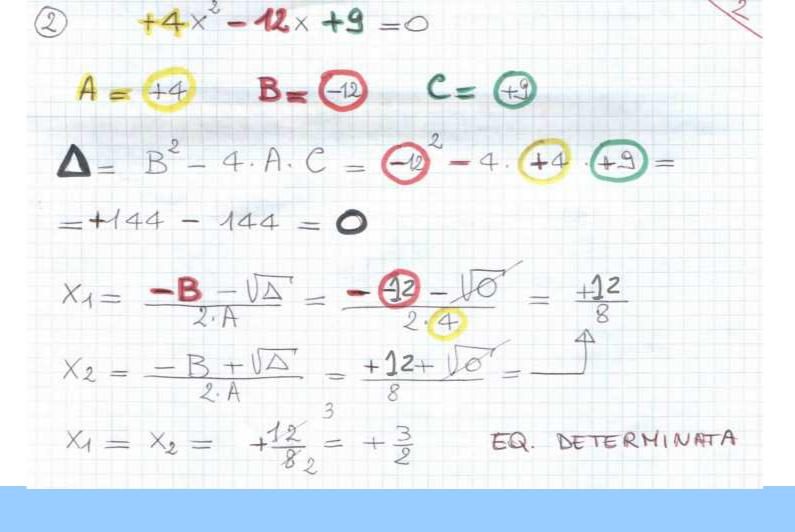 ② +4x² - 12x +9 = 0
2
A = +4 B = -12 C = +9
Δ = B² - 4·A·C = -12² - 4· +4 · +9 =
= +144 - 144 = 0
X₁ = (-B - √Δ)/(2·A) = (- -12 - √0)/(2·4) = +12/8
X₂ = (-B + √Δ)/(2·A) = (+12 + √0)/8 = ↑
X₁ = X₂ = +12/8 3 2 = +3/2 EQ. DETERMINATA